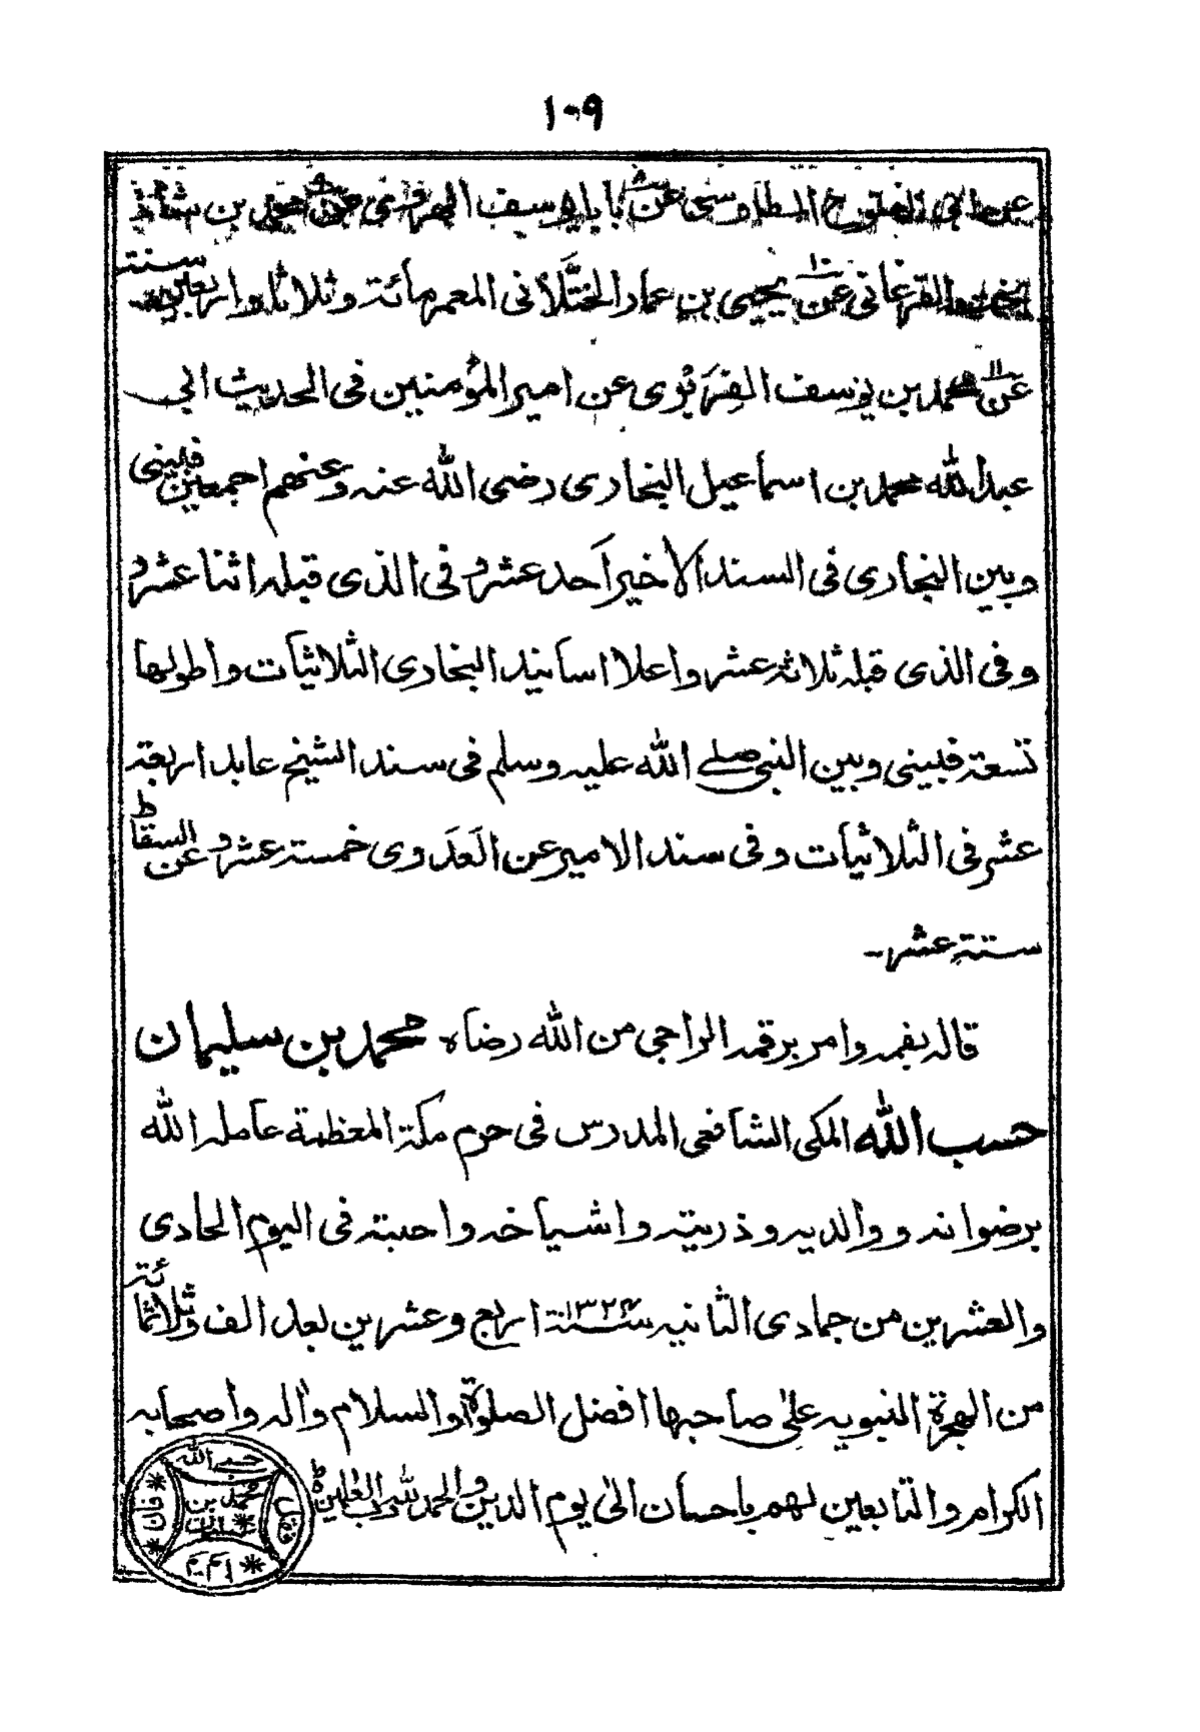 ١٠٩
عن ابى الفتوح الطاوسى عن٨ بابا يوسف الهروى عن٩ محمد بن شاذ
بخت الفرغانى عن١٠ يحيى بن عمار الختَّلانى المعمر مائة وثلاثا واربعين سنة
عن١١ محمد بن يوسف الفِرَبْرى عن امير المؤمنين فى الحديث ابى
عبدالله محمد بن اسماعيل البخارى رضى الله عنه وعنهم اجمعين فبينى
وبين البخارى فى السند الاخير اَحد عشر و فى الذى قبله اثنا عشر و
وفى الذى قبله ثلاثة عشر واعلا اسانيد البخارى الثلاثيات واطولها
تسعة فبينى وبين النبى صلے الله عليه وسلم فى سند الشيخ عابد اربعة
عشر فى الثلاثيات وفى سند الامير عن العَدَوى خمسة عشر و عن السقاط
ستة عشر۔
قاله بفمه وامر برقمه الراجى من الله رضاه محمد بن سليمان
حسب الله المكى الشافعى المدرس فى حرم مكة المعظمة عامله الله
برضوانه ووالديه وذريته واشياخه واحبته فى اليوم الحادى
والعشرين من جمادى الثانيه سنة١٣٢٤ اربع وعشرين بعد الف وثلاثمائة
من الهجرة النبويه على صاحبها افضل الصلوة والسلام واٰله واصحابه
الكرام والتابعين لهم باحسان الىٰ يوم الدين والحمد لله رب العٰلمين ٥ط
حسب الله
محمد بن
سليمان